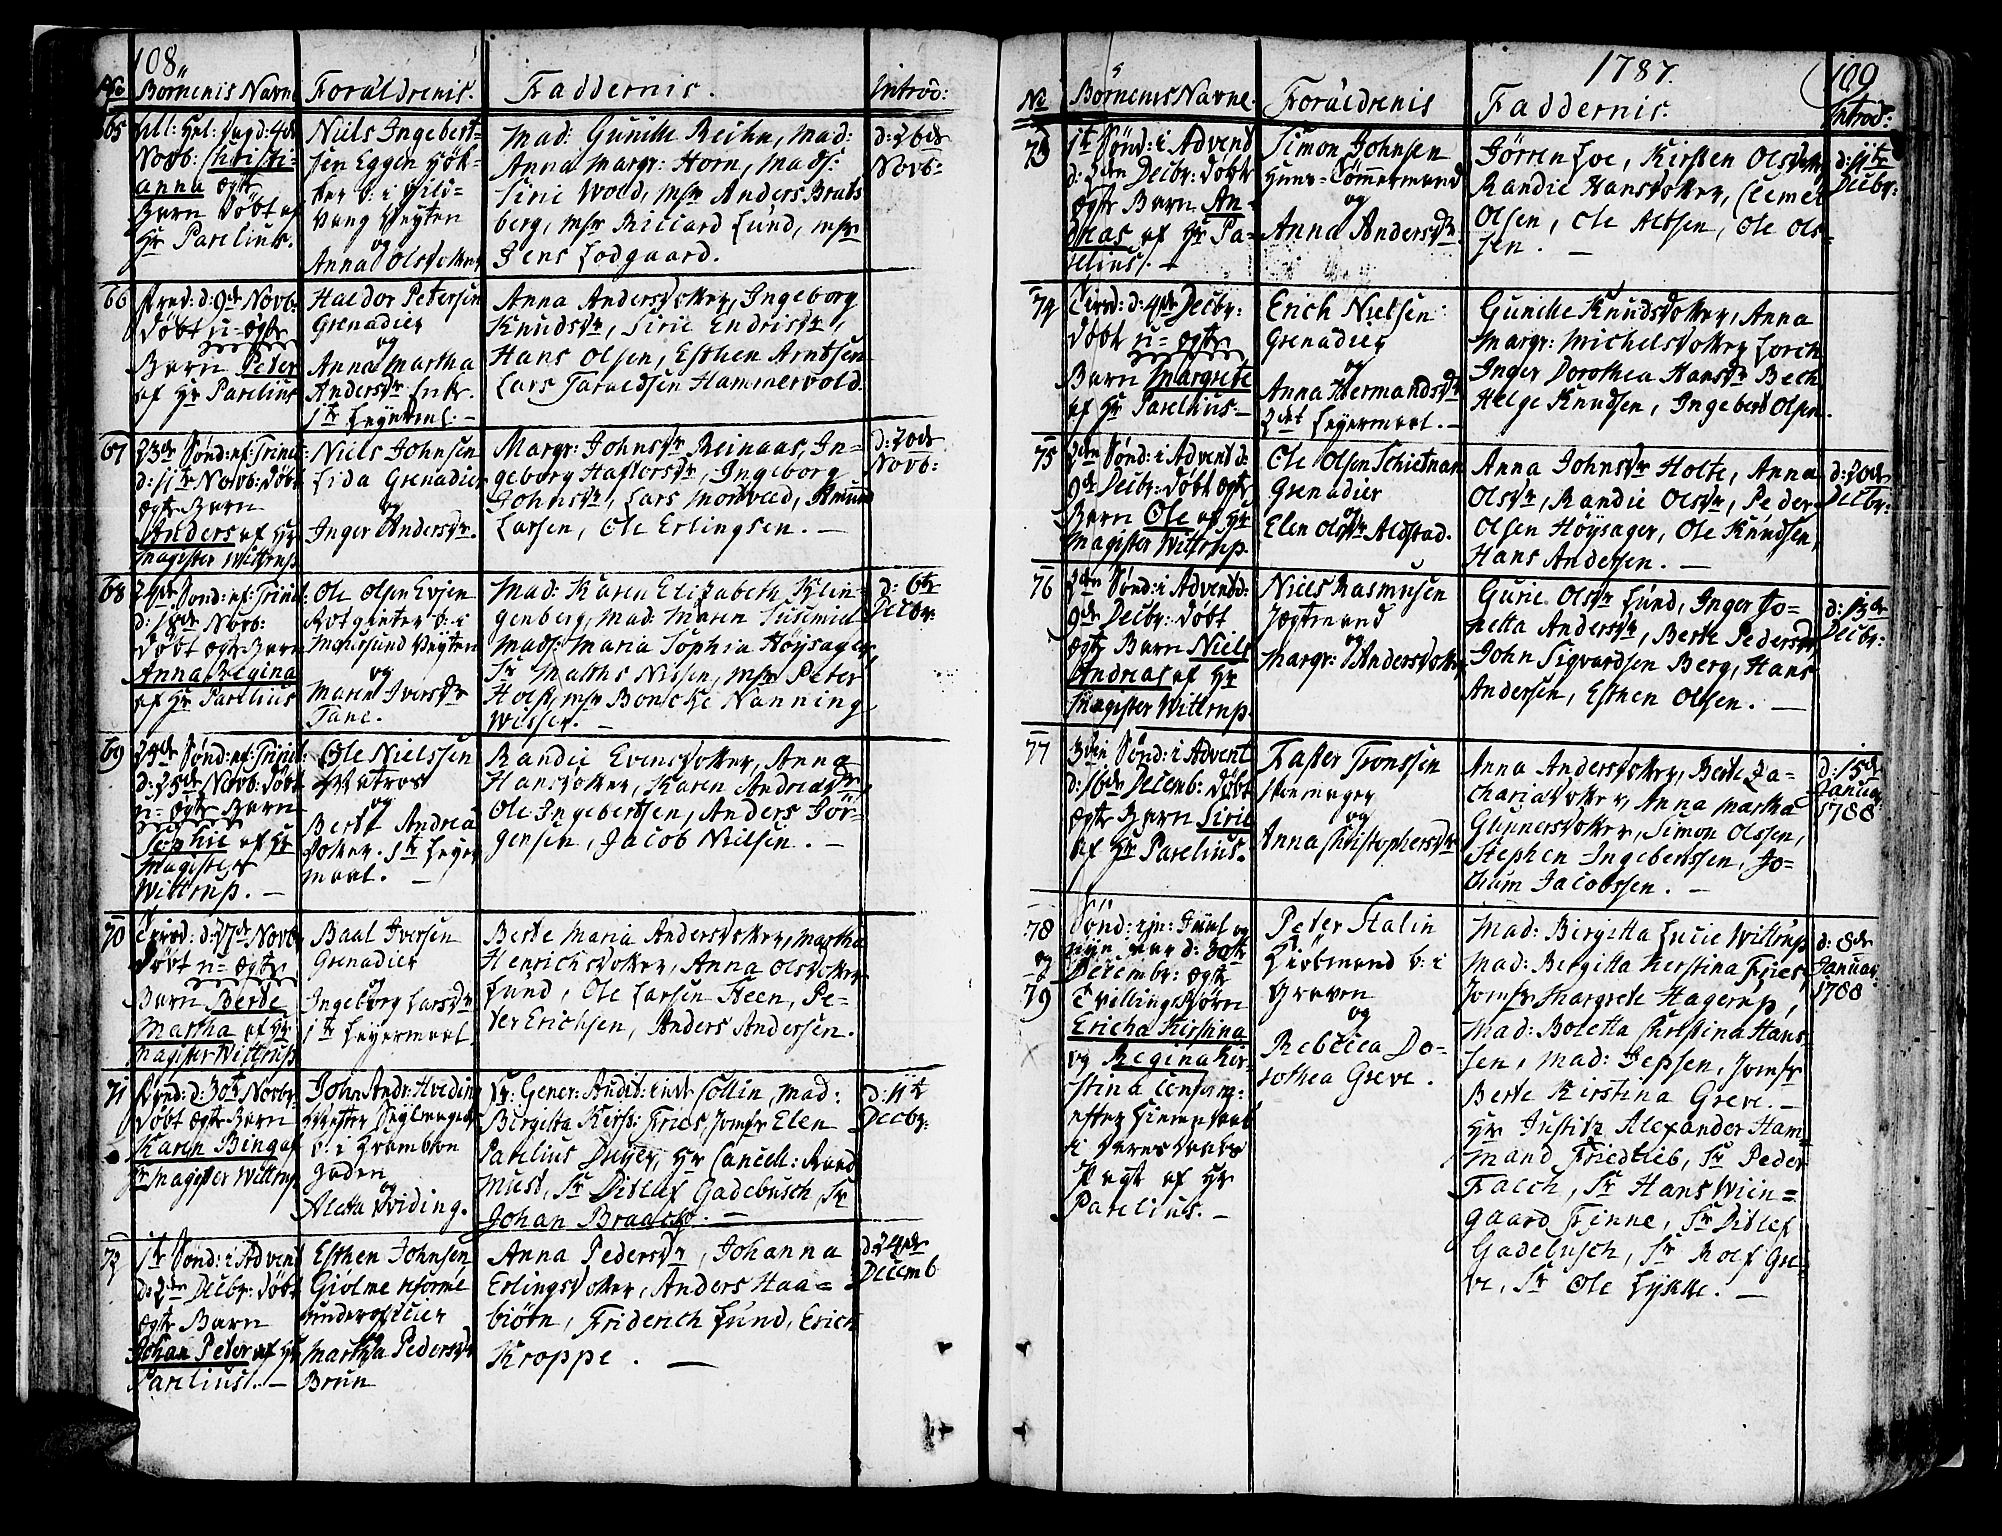 108.
No
Börnenis Navne
Forældrenis.
Faddernis.
Introd:
65
All: Hel: Dag d: 4de
Novb: Christi-
anna ægte
Barn døbt af
Hr Parelius.
Niels Ingebert-
sen Eggen Hök-
ker b: i
Vang Veyten
og
Anna Olsdotter
Mad: Gunille Reihn, Mad:
Anna Margr: Horn, Mads:
Sirie Wold, Msr Anders Brats
berg, Msr Riccard Lund, Msr
Jens Lodgaard.
d: 26de
Novb:
66
Fred: d: 9de Novb:
døbt u=ægte
Barn Peder
af Hr Parelius
Haldor Petersen
Grenadier
og
Anna Martha
Andersdr Enke.
1te Leyerml. -
Anna Andersdotter, Ingeborg
Knudsdr, Sirie Endrisdr,
Hans Olsen, Esthen Arntsen
Lars Taraldsen Hammervold.
67
23de Sönd: ef: Trinit:
d: 11te Novb: döbt
ægte Barn
Anders af Hr
Magister Wittrup
Niels Johnsen
Lida Grenadier
og
Inger Andersdr.
Margr: Johnsdr Reinaas, In-
geborg Haftorsdr, Ingeborg
Johnsdr, Lars Moxvald, Knud
Larsen, Ole Erlingsen. -
d: 20de
Novb:
68
24de Sönd: ef: Trinit:
d: 18de Novb:
døbt ægte Barn
Anna Regina
af Hr Parelius
Ole Olsen Evjen
Rotgieter b: i
Veyten
og
Maren Iversdr
Tane.
Mad: Karen Elizabeth Klin-
genberg, Mad: Maren Susemiel
Mads: Maria Sophia Höysager,
Sr Malths Nissen, Msr Peter
Holst, Msr Boncke Nanning
Wisser. -
d: 6te
Decbr:
69
d: 25de Novb: döbt
u=ægte Barn
Sophie af Hr
Magister
Wittrup. -
Ole Nielssen
Matros
og
Berte Andrea
dotter. 1te Leyer
maal. -
Randie Evensdotter, Anna
Hansdotter, Karen Andreasdr,
Ole Ingebertsen, Anders Jör-
gensen, Jacob Nielsen. -
70
Tirsd: d: 27de Novb:
døbt u=ægte
Barn Berte
Martha af Hr
Magister Wittrup
Baal Iversen
Grenadier
og
Ingeborg Larsdr
1te Leyermaal
Berte Maria Andersdotter, Martha
Henrichsdotter, Anna Olsdotter
Lund, Ole Larsen Steen, Pe-
der Erichsen, Anders Andersen.
71
Fred: d: 30te Novbr:
døbt ægte Barn
Karen Bing af
Hr Magister Wittrup
John Andr: Hveding
b: i Grambten
gaden
og
Aletta Hviding.
Fr: Gener: Audit: inde Collin, Mad:
Birgitta Kirst: Fries, Jomfr Elen
Parelius Dreyer, Hr Cancell: Raad
Must, Sr Ditlef Gadebusch, Sr
Johan Braack. -
d: 11te
Decbr:
72
1te Sönd: i Advent
d: 2den Decbr: døbt
ægte Barn
Johan Peter af Hr
Parelius. -
Esthen Johnsen
Giolme reforme
underofficier
og
Martha Pedersdr
Brun
Anna Pedersdr, Johanna
Erlingsdotter, Anders Haa=
biörn, Friderich Lund, Erich
Kroppe. -
d: 24de
Decemb
1787.
109
No
Börnenis Navne.
Forældrenis
Faddernis.
Introd:
73
1te Sönd: i Advend
d: 2den Decbr: døbt
ægte Barn An-
dreas af Hr Pa-
relius. -
Simon Johnsen
Huus-Tømmermand
og
Anna Andersdr.
Jörren Loe, Kirsten Olsdotter
Randie Hansdotter, Clemet
Olsen, Ole Altsen, Ole Ols-
sen. -
d: 11te
Decbr:
74
Tirsd: d: 4de Decbr:
døbt u=ægte
Barn Margrete
af Hr Parelius. -
Erich Nielsen
Grenadier
og
Anna Hermandsdr
2det Leyermaal. -
Gunille Knudsdotter, Anna
Margr: Michelsdotter Lorck
Inger Dorothea Hansdr Bech
Helge Knudsen, Ingebert Olsen.
75
2den Sönd: i Advent d:
9de Decbr: döbt ægte
Barn Ole af Hr
Magister Wittrup.
Ole Olsen Schietnan
Grenadier
og
Elen Olsdr Aldstad.
Anna Johnsdr Holte, Anna
Olsdr, Randie Olsdr, Peder
Olsen Höysager, Ole Knudsen,
Hans Andersen. -
d: 20de
Decbr:
76
2den Sönd: i Advend d:
9de Decbr: døbt
ægte Barn Niels
Andreas af Hr
Magister Wittrup.
Niels Rasmusen
Jægtmand
og
Margr: Andersdotter
Gurie Olsdr Lund, Inger Jo-
netta Andersdr, Berte Pedersdr
John Sigvardsen Berg, Hans
Andersen, Esthen Olsen. -
d: 13de
Decbr:
77
3die Sönd: i Advent
d: 16de Decemb: døbt
ægte Barn Sirie
af Hr Parelius.
Faster Tronssen
og
Anna Christophersdr
Anna Andersdotter, Berte Za-
chariasdotter, Anna Martha
Gunnersdotter, Simon Olssen,
Stephen Ingeberssen, Jo-
chum Jacobssen. -
d: 15de
Januar
1788
78
og
79
Sönd: ejn: Juul og
nyn: aar d: 30te
Decembr: ægte
Tvillinge Børn
Ericha Kirstina
og Regina Kir-
stina
efter hiemmedaab
i deres daabs
Pagt af Hr
Parelius. -
Peter Stalin
Kiöbmand b: i
Graven
og
Rebecca Do-
rothea Greve.
Mad: Birgitta Lucie Wittrup
Mad: Bergitta Kerstina Fries,
Jomfr Margrete Hagerup,
Mad: Boletta Christina Hans-
sen, Mad: Jepsen, Jomfr
Berte Kirstina Greve. -
Hr Justitz Alexander Ham-
mand Friedlieb, Sr Peder
Falch, Sr Hans Wiin=
gaard Finne, Sr Ditlef
Gadebusch, Sr Rolf Gre-
ve, Sr Ole Lykke. -
d: 8de
Januar
1788